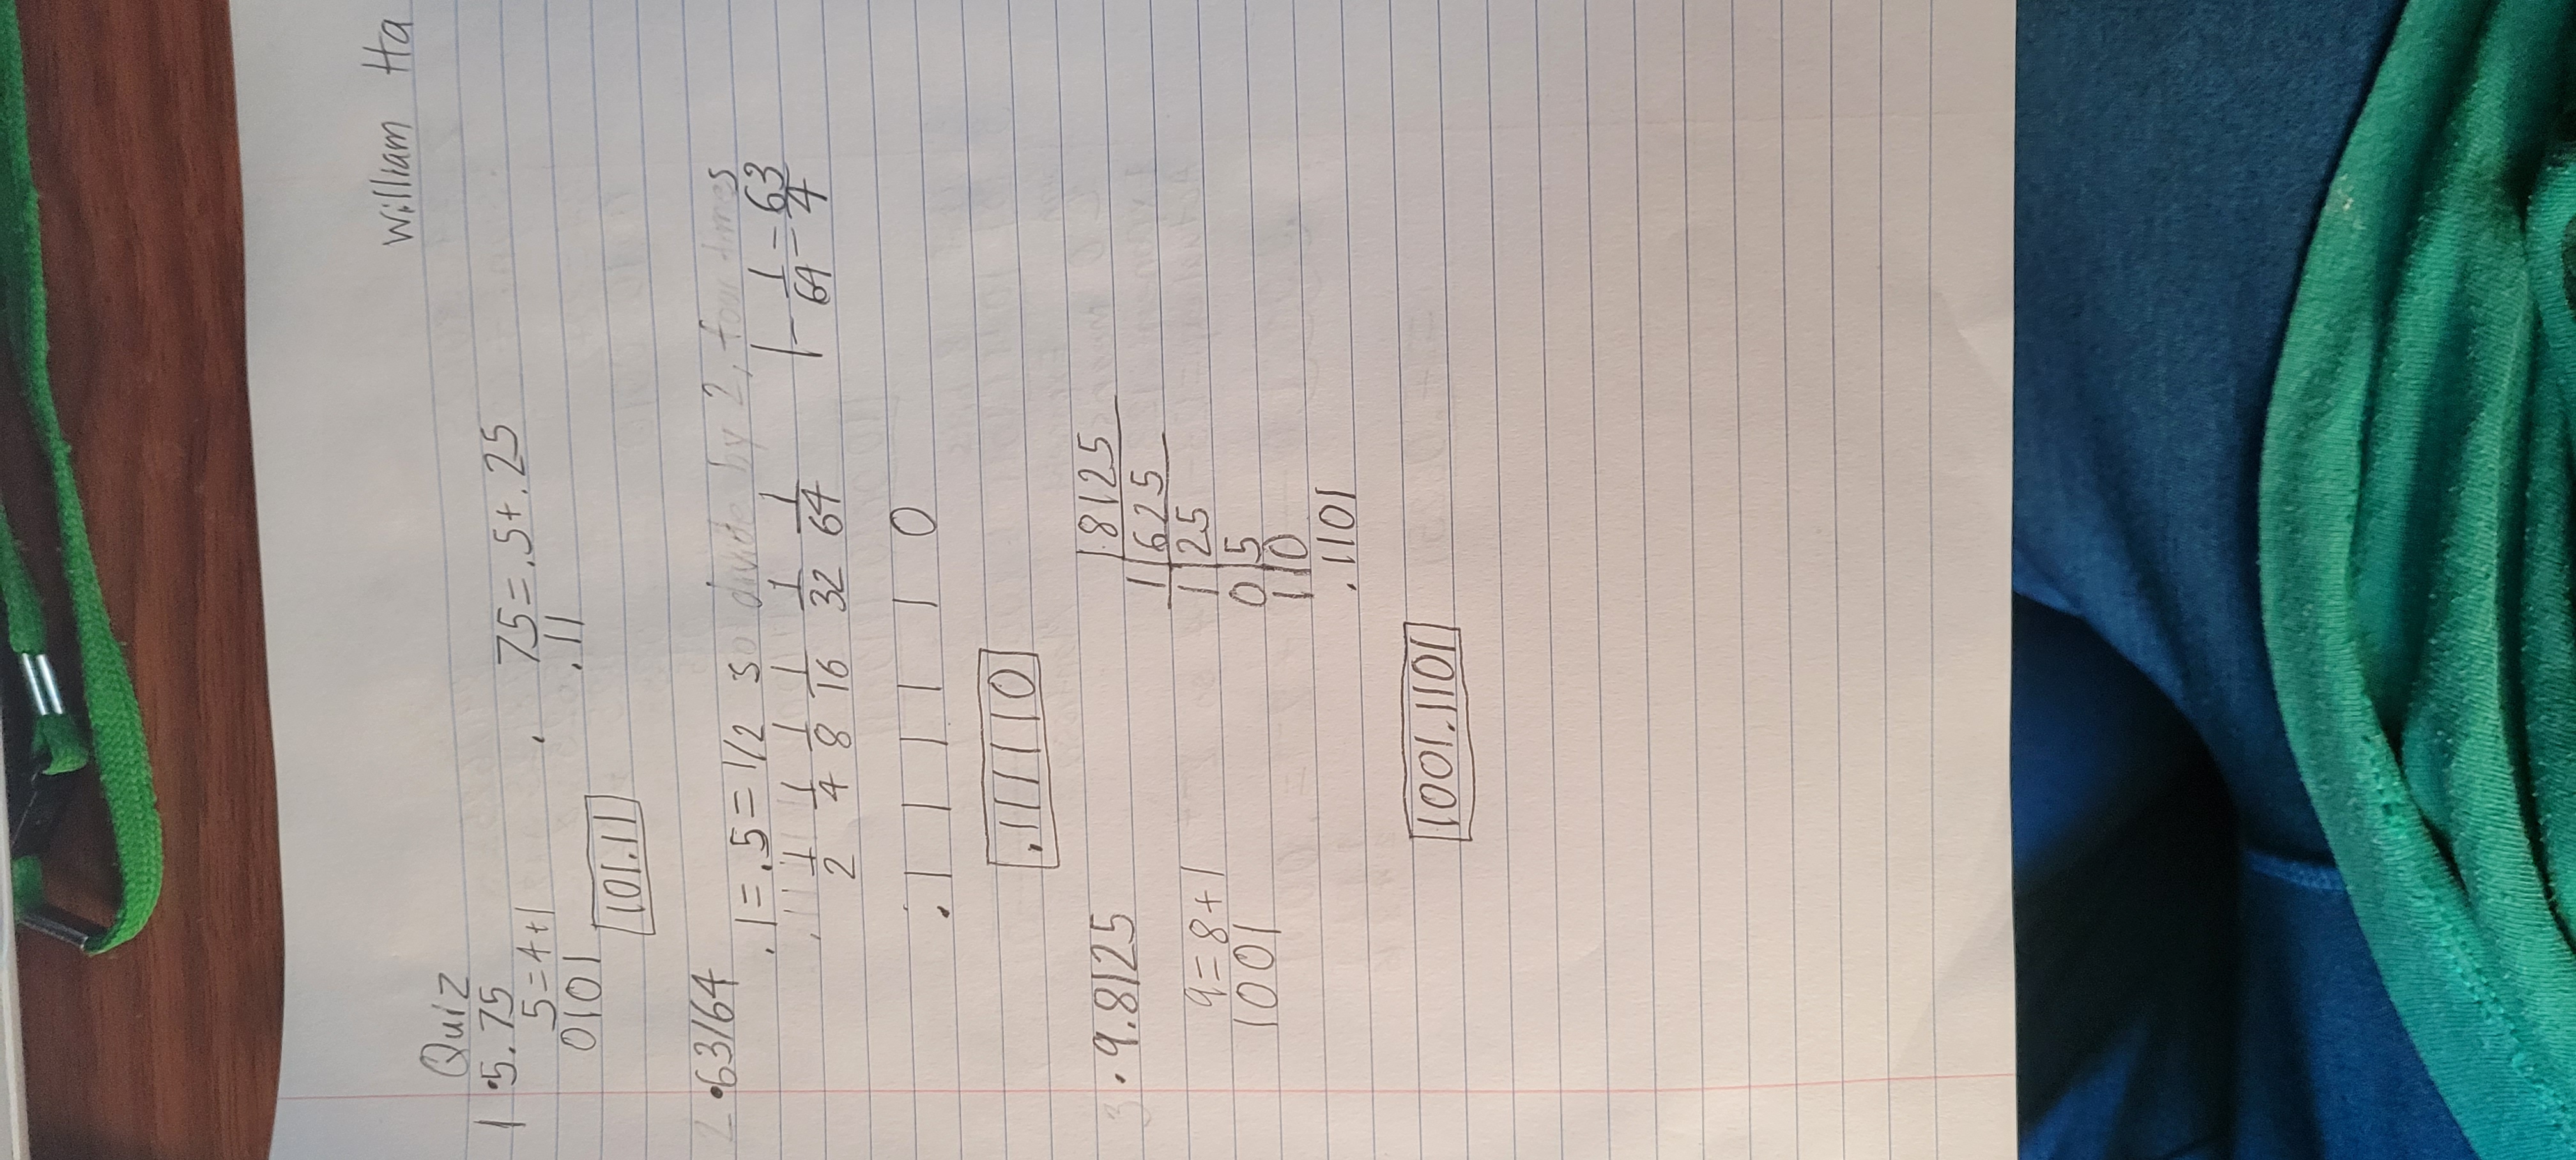 William Ha
Quiz
1 .5.75
5=4+1 . 75=.5+.25
0101 .11
101.11
2 .63/64
.1=.5=1/2 so divide by 2, four times
.111 1/2 1/4 1/8 1/16 1/32 1/64 1-1/64=63/4
.1 1 1 1 1 0
.111110
3 .9.8125 .8125
1 625
9=8+1 1 25
1001 0 5
1 0
.1101
1001.1101